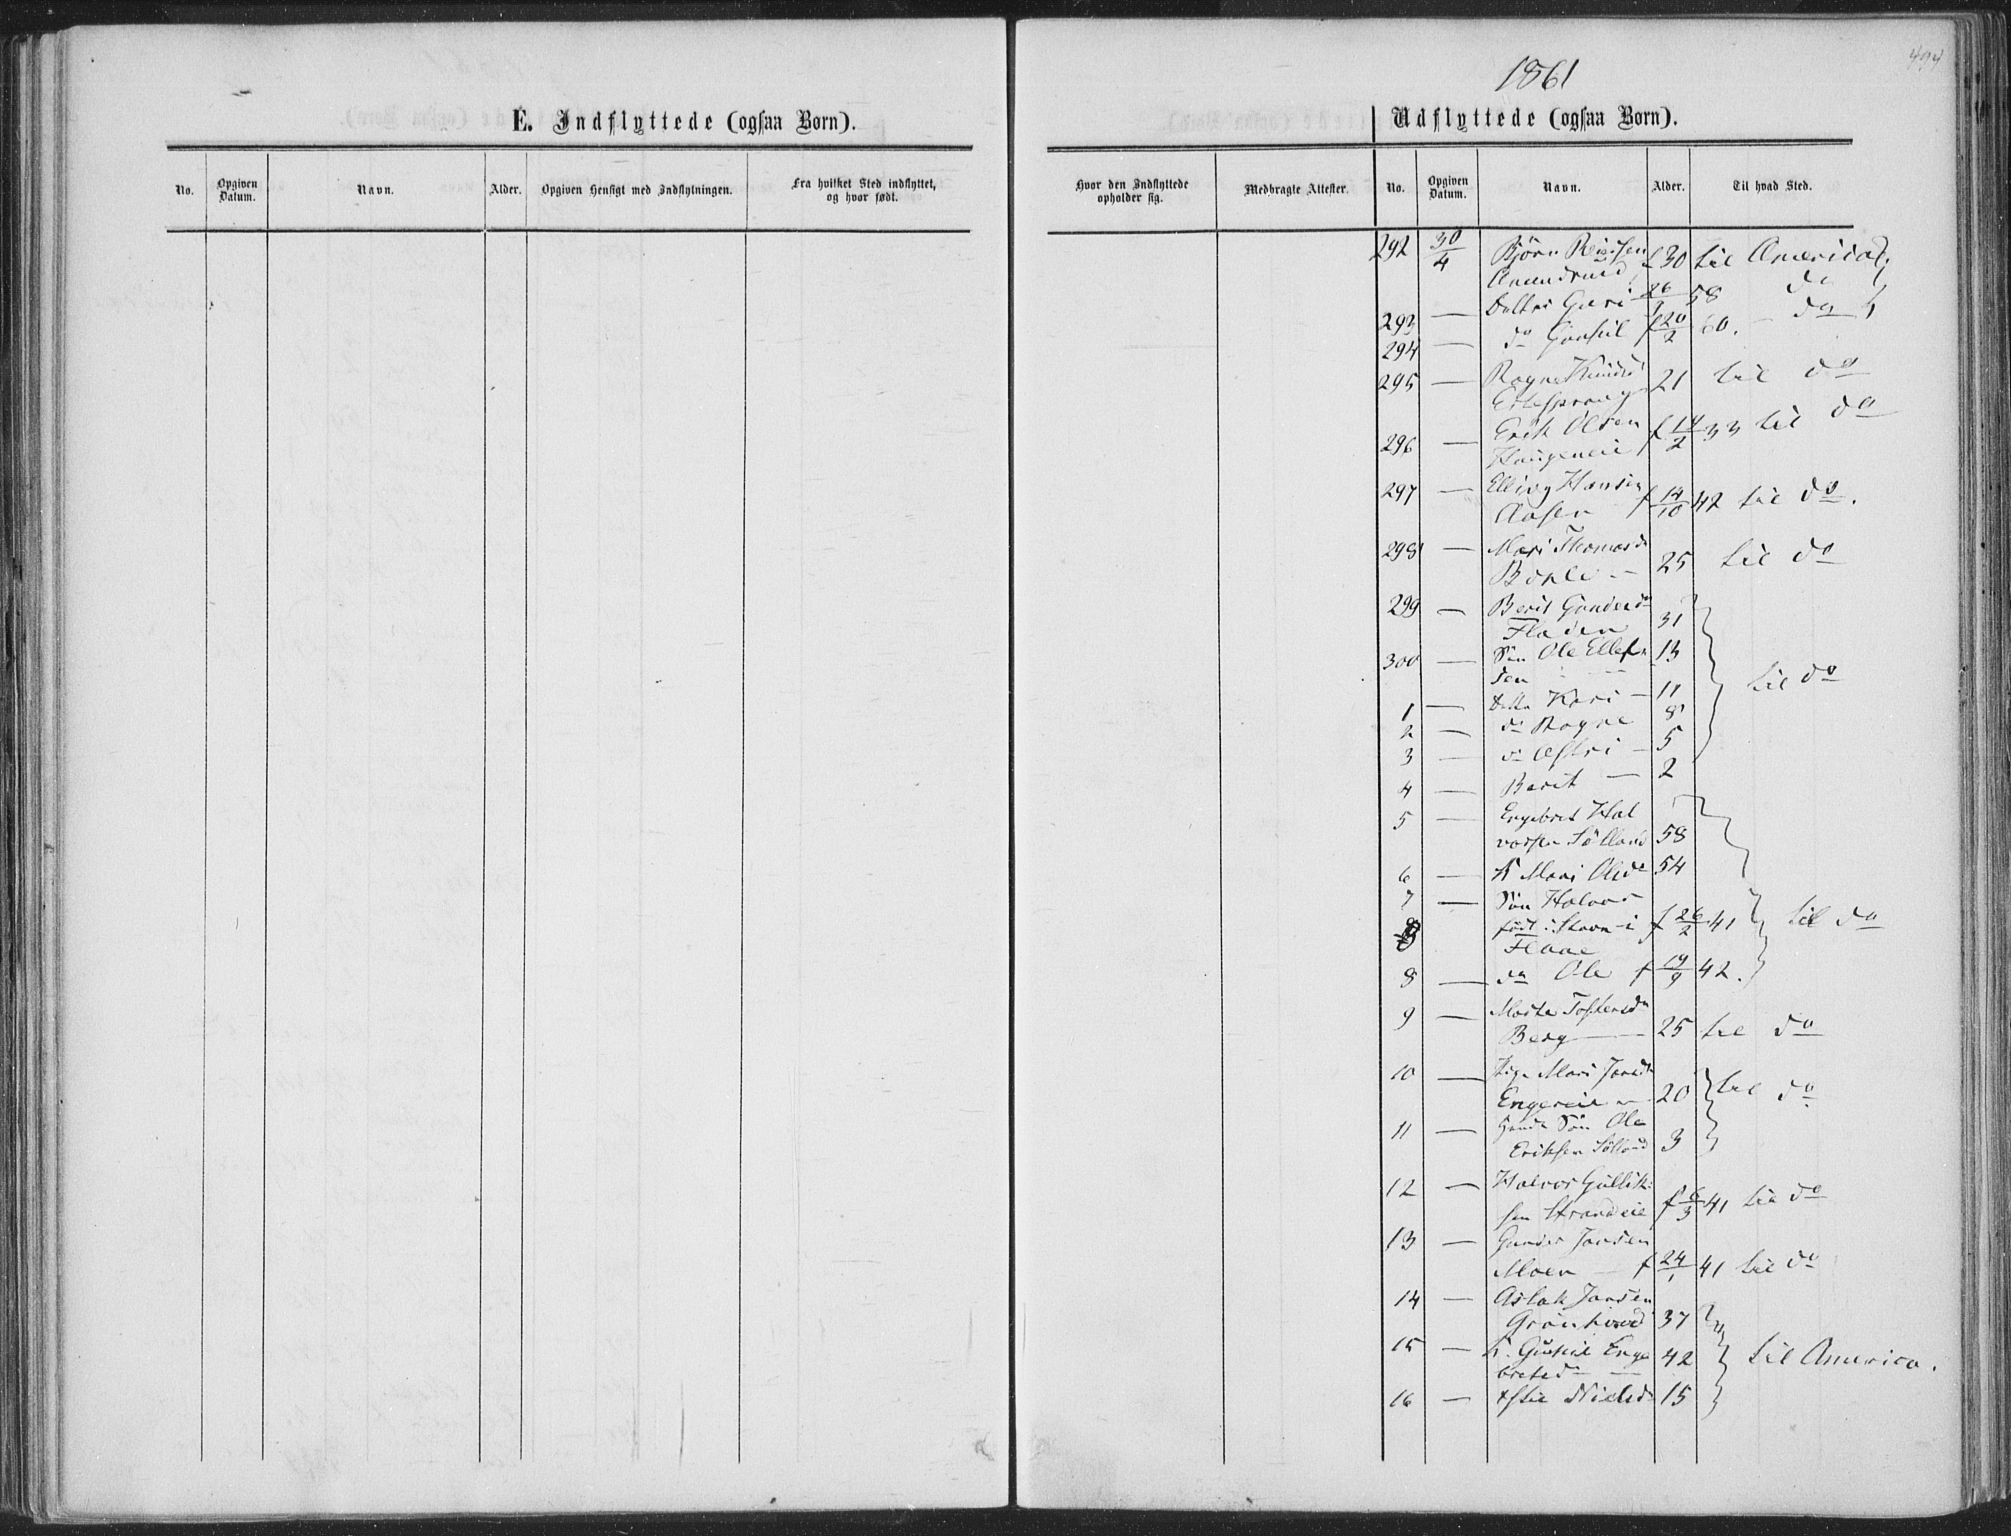 494
1861
E. Indflyttede (ogsaa Børn).
Udflyttede (ogsaa Børn).
No. Opgiven Datum. Navn. Alder. Opgiven Hensigt med Indflytningen. Fra hvilket Sted indflyttet, og hvor født.
Hvor den Indflyttede opholder sig. Medbragte Attester. No. Opgiven Datum. Navn. Alder. Til hvad Sted.
292 30/4 Björn
30 til America
Guri 26/3 58 do
293 —
do Gunhil f 20/2 60. — do
294 —
295 — Ragne Knudsd 21 til do
296 — Erik Olsen f 14/2 33 til do
Haugeneie
297 — Elling Hansen
Aasen f 14/10 42 til do.
298 — Mari Thomasd
25 til do
299 — Berit Gundersd
Fladen 31
300 — Sön Ole Ellef- 13
sen
til do
1 — Dattr Kari — 11
2 — do Ragne 8
3 — do Astri — 5
4 — Berit — 2
5 — Engebret Hal
vorsen Sölland 58
6 — K Mari Olsd 54
7 — Sön Halvor
født i Stavn i f 26/2 41 til do
Flaae
8 — do Ole f 19/9 42.
9 — Marte Tostensd
Berg — 25 til do
10 — Pige Mari Jonsd
Engereie 20 til do
11 — hendes Sön Ole
Eriksen Sölland 3
12 — Halvor Gullik-
sen Strandeie f 6/3 41 til do
13 — Gunder Jonsen
Moen f 24/1 41 til do
14 — Aslak Jonsen
Grönhovd 37
15 — K. Gunhil Enge 42 til America.
bretsd —
16 — Nielsd 15